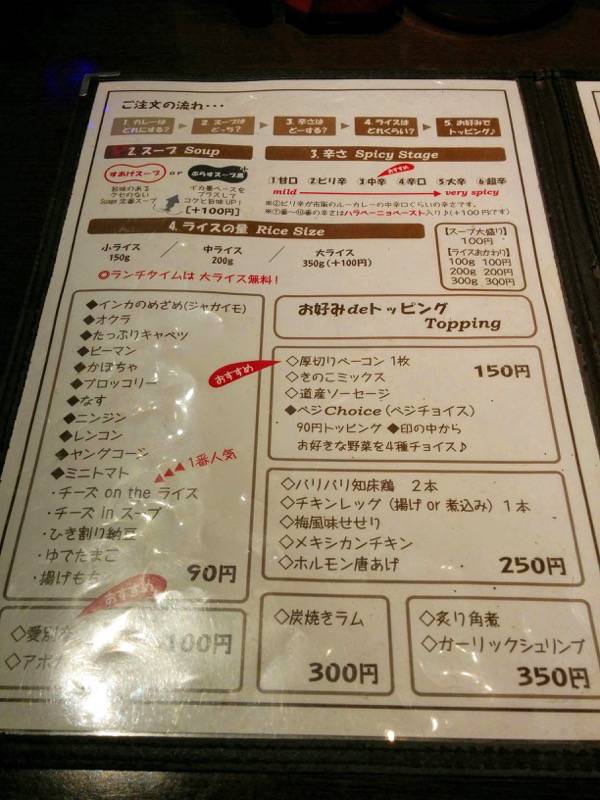 ご注文の流れ・・・
1. カレーは どれにする? ▶ 2. スープは どっち? ▶ 3. 辛さは どーする? ▶ 4. ライスは どれくらい? ▶ 5. お好みで トッピング♪
2. スープ Soup
すあげスープ or ぷらすスープ黒
旨味のある
クセのない
Suage 定番スープ
イカ墨ベースを
プラスして
コクと旨味UP!
[+100円]
3. 辛さ Spicy Stage
おすすめ
①甘口 ②ピリ辛 ③中辛 ④辛口 ⑤大辛 ⑥超辛
mild very spicy
※②ピリ辛が市販のルーカレーの中辛口くらいの辛さです。
※⑦番~⑩番の辛さはハラペーニョペースト入り♪(+100円です)
4. ライスの量 Rice Size
小ライス 150g / 中ライス 200g / 大ライス 350g(+100円)
◎ランチタイムは 大ライス無料!
【スープ大盛り】
100円
【ライスおかわり】
100g 100円
200g 200円
300g 300円
◆インカのめざめ(ジャガイモ)
◆オクラ
◆たっぷりキャベツ
◆ピーマン
◆かぼちゃ
◆ブロッコリー
◆なす
◆ニンジン
◆レンコン
◆ヤングコーン
◆ミニトマト
1番人気
・チーズ on the ライス
・チーズ in スープ
・ひき割り納豆
・ゆでたまご
・揚げもち
90円
おすすめ
◇愛別
◇アボ
100円
お好みdeトッピング
Topping
おすすめ
◇厚切りベーコン 1枚
150円
◇きのこミックス
◇道産ソーセージ
◆ベジChoice (ベジチョイス)
90円トッピング ◆印の中から
お好きな野菜を4種チョイス♪
◇パリパリ知床鶏 2本
◇チキンレッグ (揚げ or 煮込み) 1本
◇梅風味せせり
◇メキシカンチキン
◇ホルモン唐あげ
250円
◇炭焼きラム
300円
◇炙り角煮
◇ガーリックシュリンプ
350円